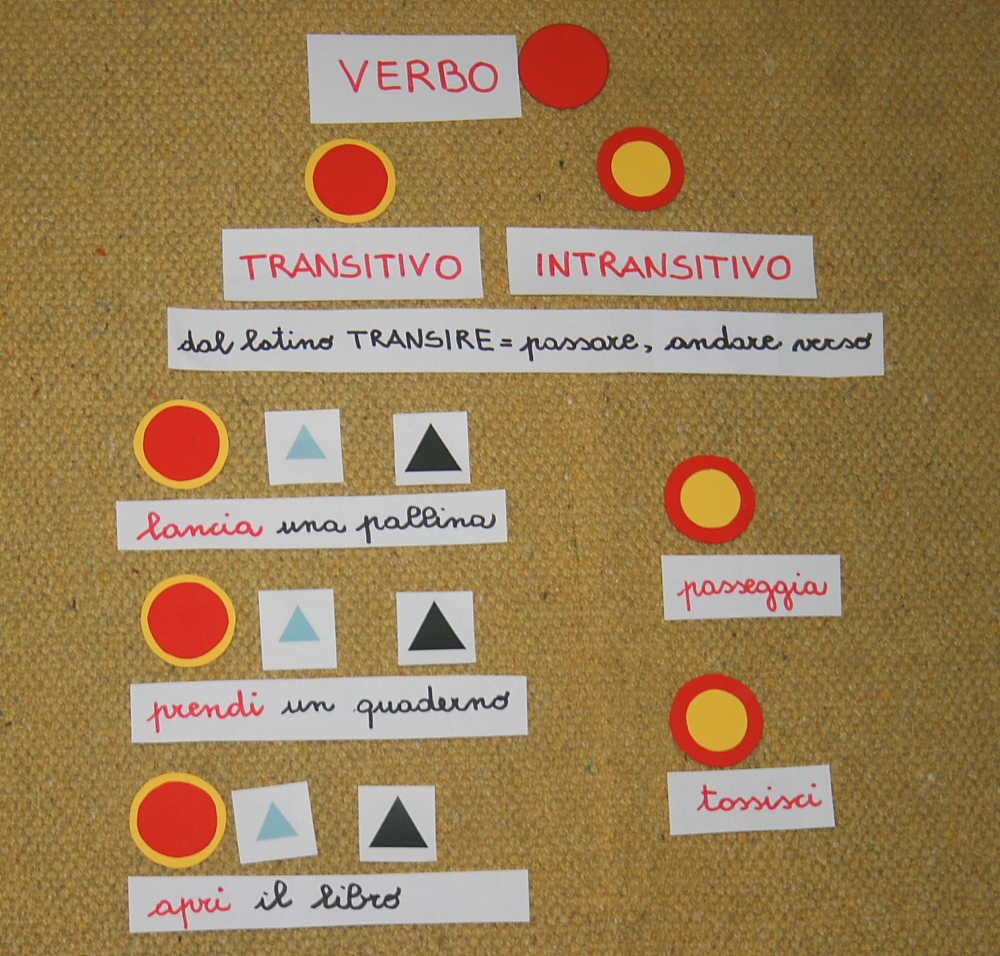 VERBO
TRANSITIVO
INTRANSITIVO
dal latino TRANSIRE = passare, andare verso
lancia una pallina
prendi un quaderno
apri il libro
passeggia
tossisci